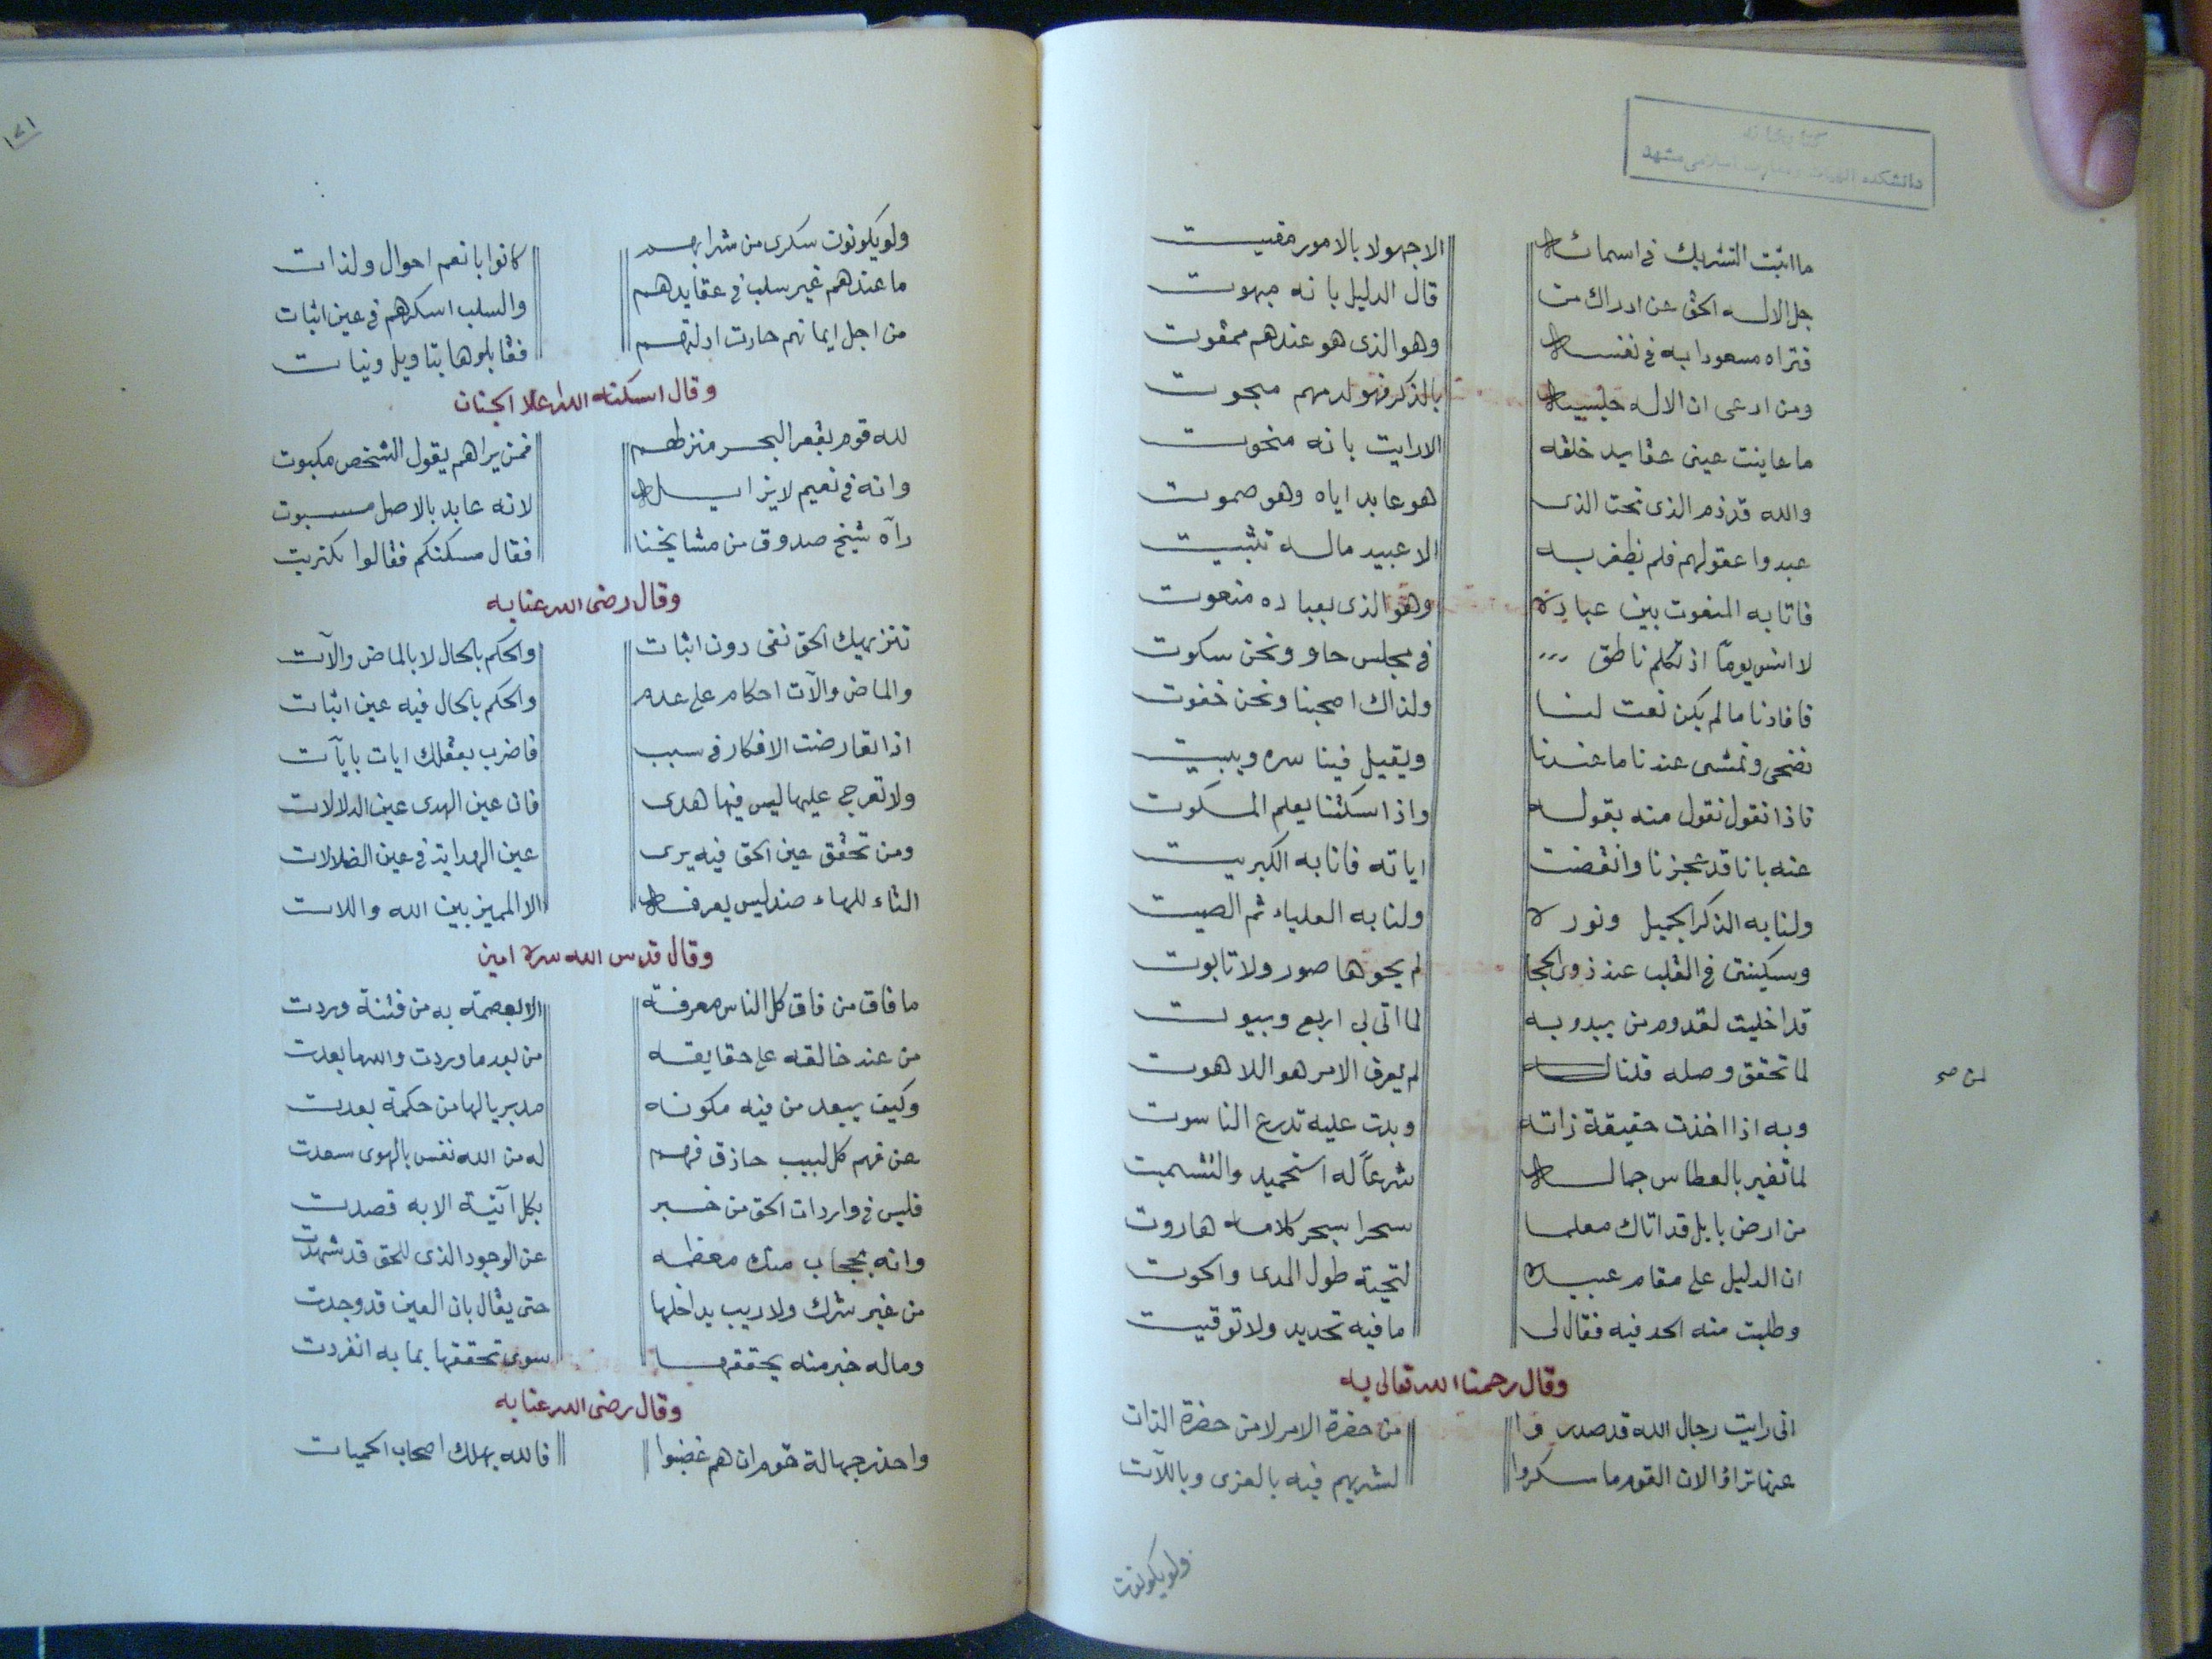 دانشكده الهيات ومعارف اسلامى مشهد
ما اثبت التشريك فى اسمائه الا جهولا بالامور مقيت
جل الاله الحق عن ادراك من قال الدليل بانه مبهوت
فتراه مسعودا به فى نفسه وهو الذى هو عندهم ممقوت
ومن ادعى ان الاله جليسه بالذكر فهو لديهم مبحوت
ما عاينت عينى عقايد خلقه الا رايت بانه منحوت
والله قد ذم الذى نحت الذى هو عابد اياه وهو صموت
عبدوا عقولهم فلم يظفر به الا عبيد ماله تثبيت
فاتا به المنعوت بين عباده وهو الذى بعباده منعوت
لا انس يوماً اذ تكلم ناطق فى مجلس حاو ونحن سكوت
فافادنا ما لم يكن نعت لنا ولذاك اصبحنا ونحن خفوت
نضحى ونمشى عندنا ما عندنا ويقيل فينا سره ويبيت
فاذا نقول نقول منه بقوله واذا سكتنا يعلم المسكوت
عنه بانا قد عجزنا وانقضت اياته فانا به الكبريت
ولنا به الذكر الجميل ونوره ولنا به العلياء ثم الصيت
وسكينتى فى القلب عند ذوى الحجا لم يحوها صور ولا تابوت
قد اخليت لقدوم من يبدو به لما اتى لى اربع وبيوت
لما تحقق وصله قلنا له لم يعرف الامر هو اللاهوت
لمن صح
وبه اذا اخذت حقيقة ذاته وبدت عليه تدرع الناسوت
لما تغير بالعطاس جماله شرعاً له التحميد والتشميت
من ارض بابل قد اتاك معلما سحرا بسحر كلامه هاروت
ان الدليل على مقام عبيده لتحية طول المدى والحوت
وطلبت منه الحد فيه فقال لى ما فيه تحديد ولا توقيت
وقال رحمنا الله تعالى به
انى رايت رجال الله قد صدروا من حضرة الامر لا من حضرة الذات
عنها تراؤا لان القوم ما سكروا لشربهم فيه بالعزى وباللآت
ولو يكونوت
١٧١
ولو يكونوت سكرى من شرابهم كانوا بانعم احوال ولذات
ما عندهم غير سلب فى عقايدهم والسلب اسكرهم فى عين اثبات
من اجل ايمانهم حارت ادلتهم فقابلوها بتاويل ونيات
وقال اسكنه الله اعلا الجنان
لله قوم بقعر البحر منزلهم فمن يراهم يقول الشخص مكبوت
وانه فى نعيم لا يزايله لانه عابد بالاصل مسبوت
رآه شيخ صدوق من مشايخنا فقال مسكنكم فقالوا تكريت
وقال رضى الله عنا به
تنزيهك الحق نفى دون اثبات والحكم بالحال لا بالماض والآت
والماض والآت احكام على عدم والحكم بالحال فيه عين اثبات
اذا تعارضت الافكار فى سبب فاضرب بعقلك ايات بايآت
ولا تعرج عليها ليس فيها هدى فان عين الهدى عين الدلالات
ومن تحقق عين الحق فيه يرى عين الهداية فى عين الضلالات
التاء للهاء ضد ليس يعرفه الا المميز بين الله واللات
وقال قدس الله سره امين
ما فاق من فاق كل الناس معرفة الا بعصمة به من فتنة وردت
من عند خالقه على حقايقه من بعد ما وردت والله ما بعدت
وكيف يبعد من فيه مكونه مدبر يا لها من حكمة بعدت
عن فهم كل لبيب حاذق فهم له من الله نفس بالهوى سعدت
فليس فى واردات الحق من خبر بكل آنية الا به قصدت
وانه بحجاب منك معظمه عن الوجود الذى للحق قد شهدت
من غير شرك ولا ريب يداخلها حتى يقال بان العين قد وجدت
وماله خبر منه يحققها سوى تحققها بما به انفردت
وقال رضى الله عنا به
واحذر جهالة قوم ان هم غضبوا فالله يهلك اصحاب الحميات